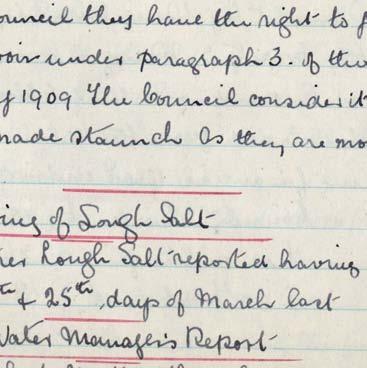 ouncil they have the right to f
voir under paragraph 3. of the
of 1909 The Council consider it
made staunch As they are mo
ing of Lough Salt
her Lough Salt reported having
th & 25th, days of March last
Water Manager's Report